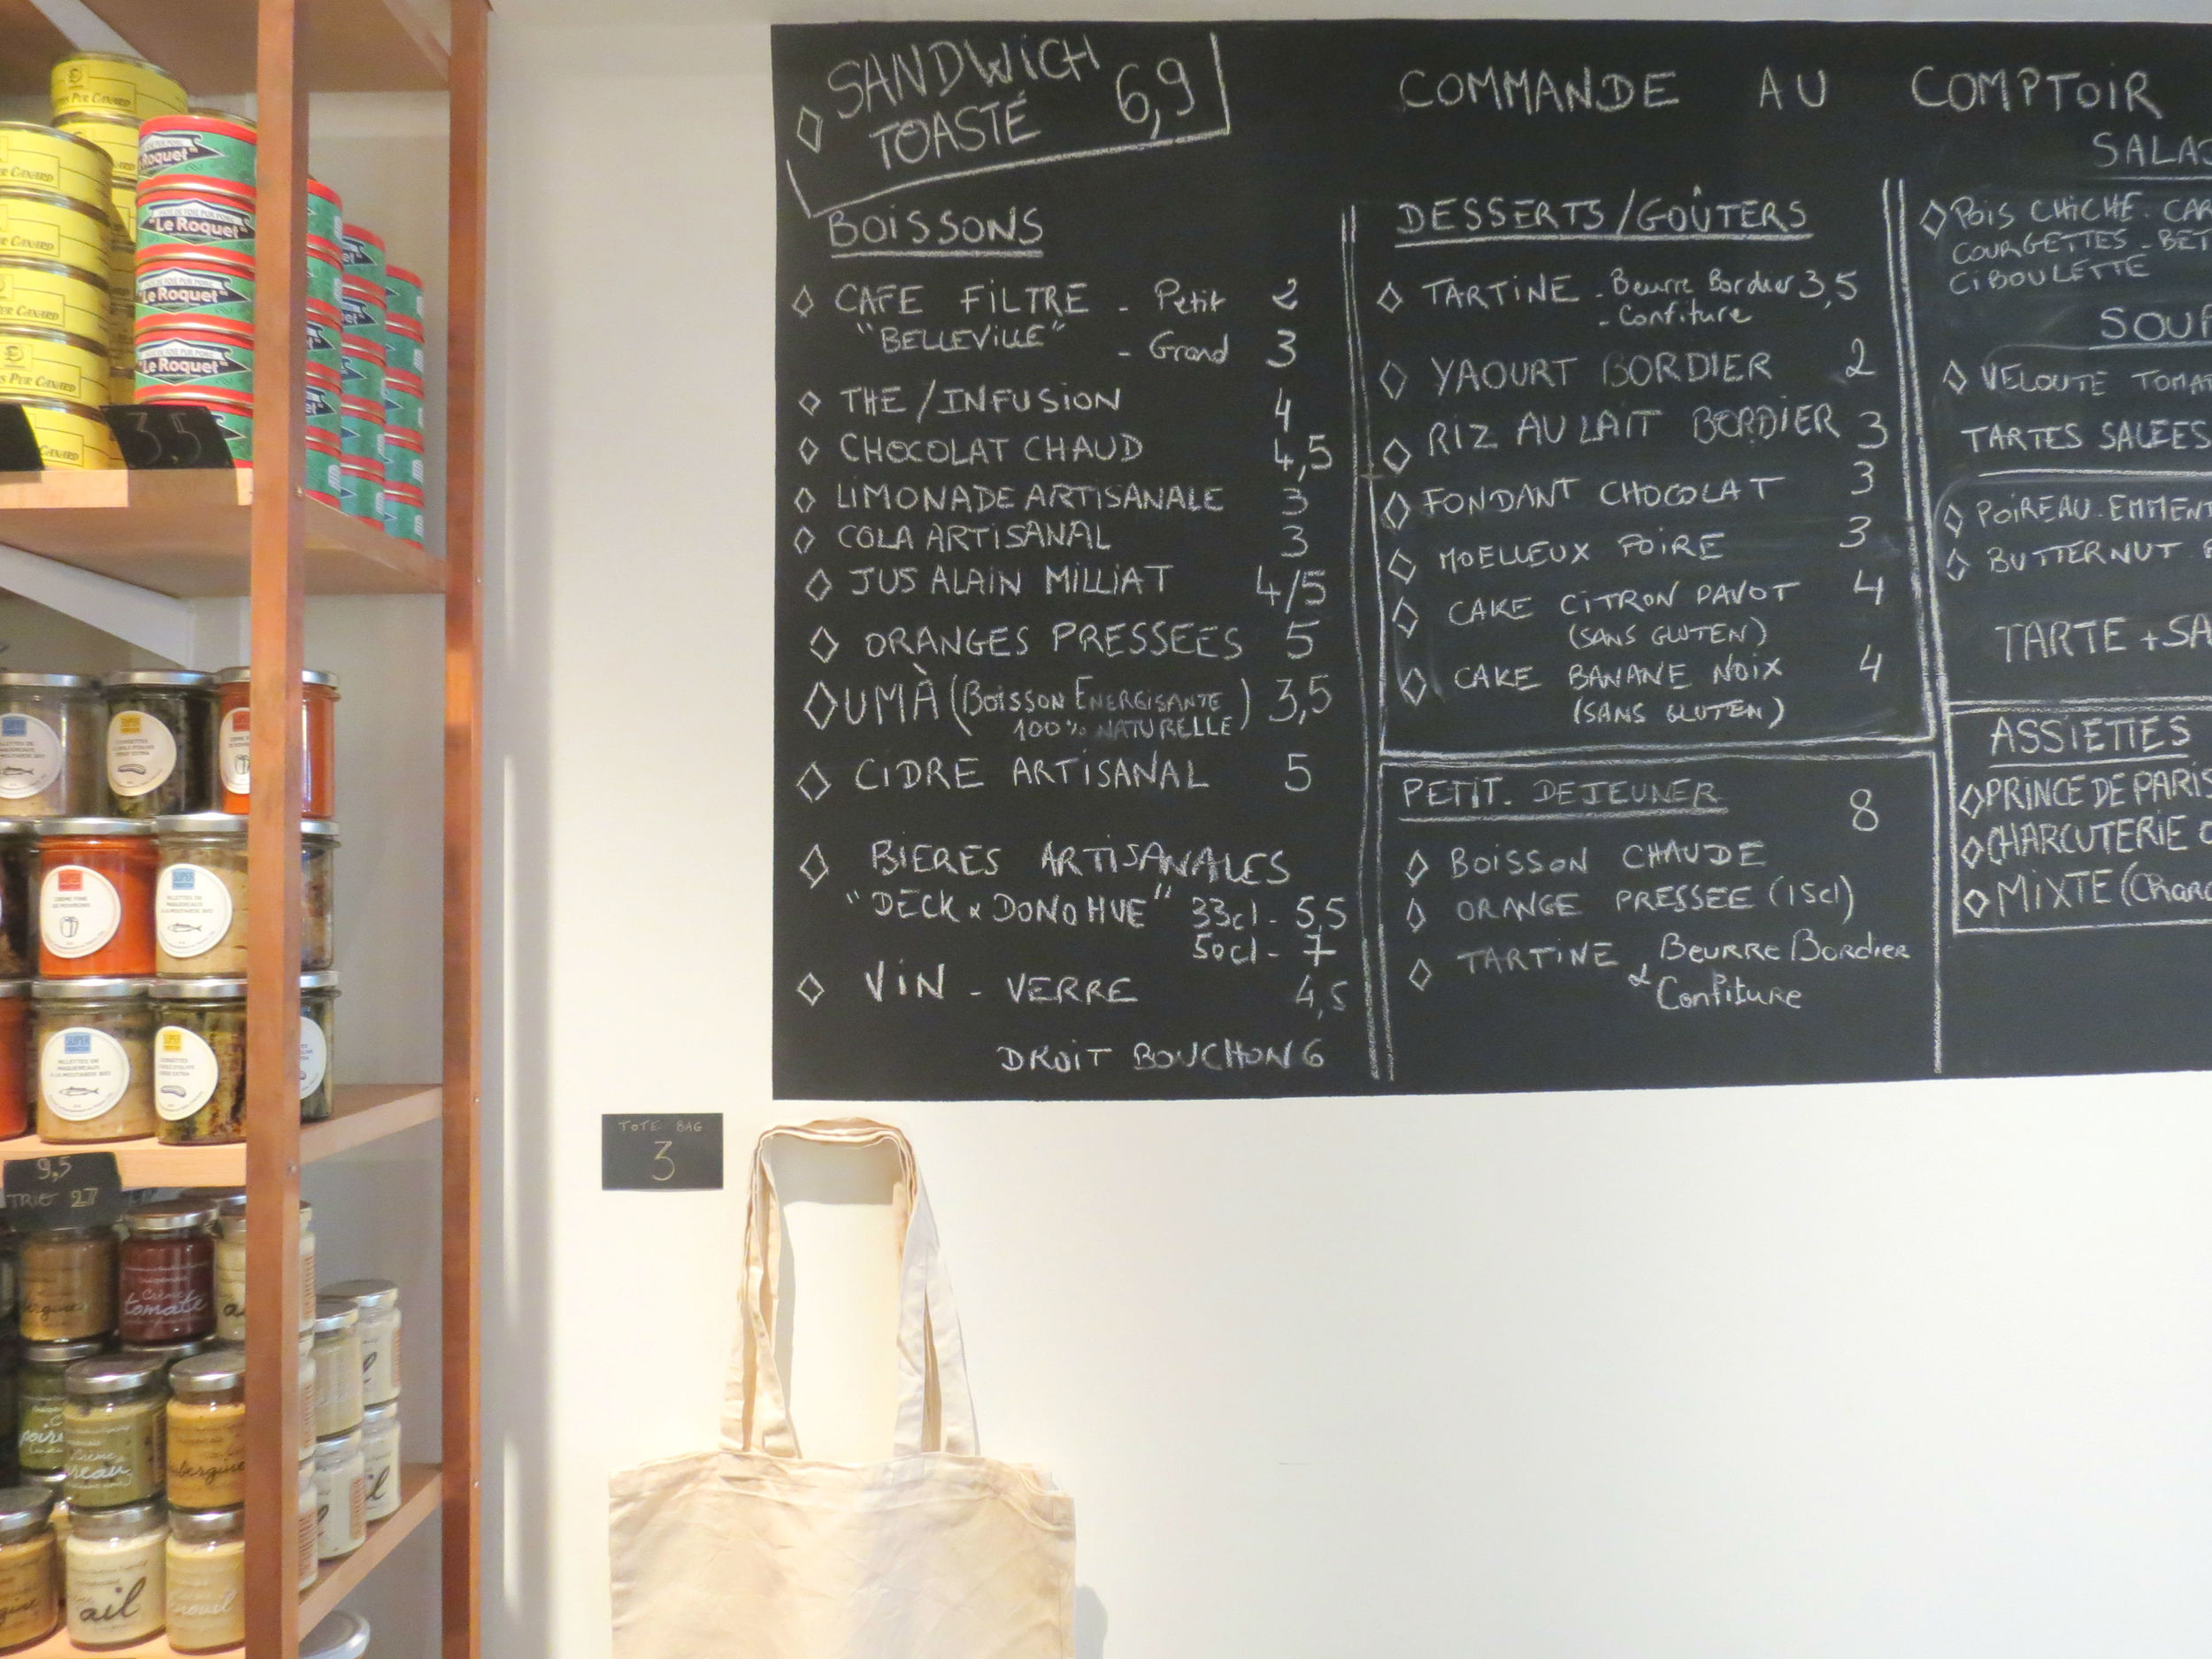 SANDWiCH
TOASTÉ 6,9
COMMANDE AU COMPTOiR
BOiSSONS
CAFE FiLTRE - Petit 2
"BELLEViLLE" - Grand 3
THE /INFUSiON 4
CHOCOLAT CHAUD 4,5
LiMONADE ARTiSANALE 3
COLA ARTiSANAL 3
JUS ALAiN MiLLiAT 4/5
ORANGES PRESSEES 5
UMÀ (BOiSSON ENERGiSANTE 3,5
100% NATURELLE)
CiDRE ARTiSANAL 5
BiERES ARTiSANALES
"DECK & DONOHUE" 33cl - 5,5
50cl - 7
ViN - VERRE 4,5
DROiT BOUCHON 6
DESSERTS/GOÛTERS
TARTiNE - Beurre Bordier 3,5
- Confiture
YAOURT BORDIER 2
RIZ AU LAiT BORDIER 3
FONDANT CHOCOLAT 3
MOELLEUX POiRE 3
CAKE CiTRON PAVOT 4
(SANS GLUTEN)
CAKE BANANE NOiX 4
(SANS GLUTEN)
PETiT. DEJEUNER 8
BOiSSON CHAUDE
ORANGE PRESSEE (15cl)
TARTiNE BEURRE Bordier
& Confiture
SALA
POiS CHiCHE - CAR
COURGETTES - BET
CiBOULETTE
SOUP
VELOUTE TOMAT
TARTES SALEES
POiREAU - EMMENT
BUTTERNUT
TARTE + SA
ASSiETTES
PRiNCE DE PARiS
CHARCUTERiE
MiXTE (Charc
TOTE BAG
3
PUR CANARD
PÂTÉ DE FOIE PUR PORC
"Le Roquet"
3,5
SUPER
RILLETTES DE
MAQUEREAUX
À LA MOUTARDE BIO
9,5
TRiO 27
Crème
tomate
aubergine
ail